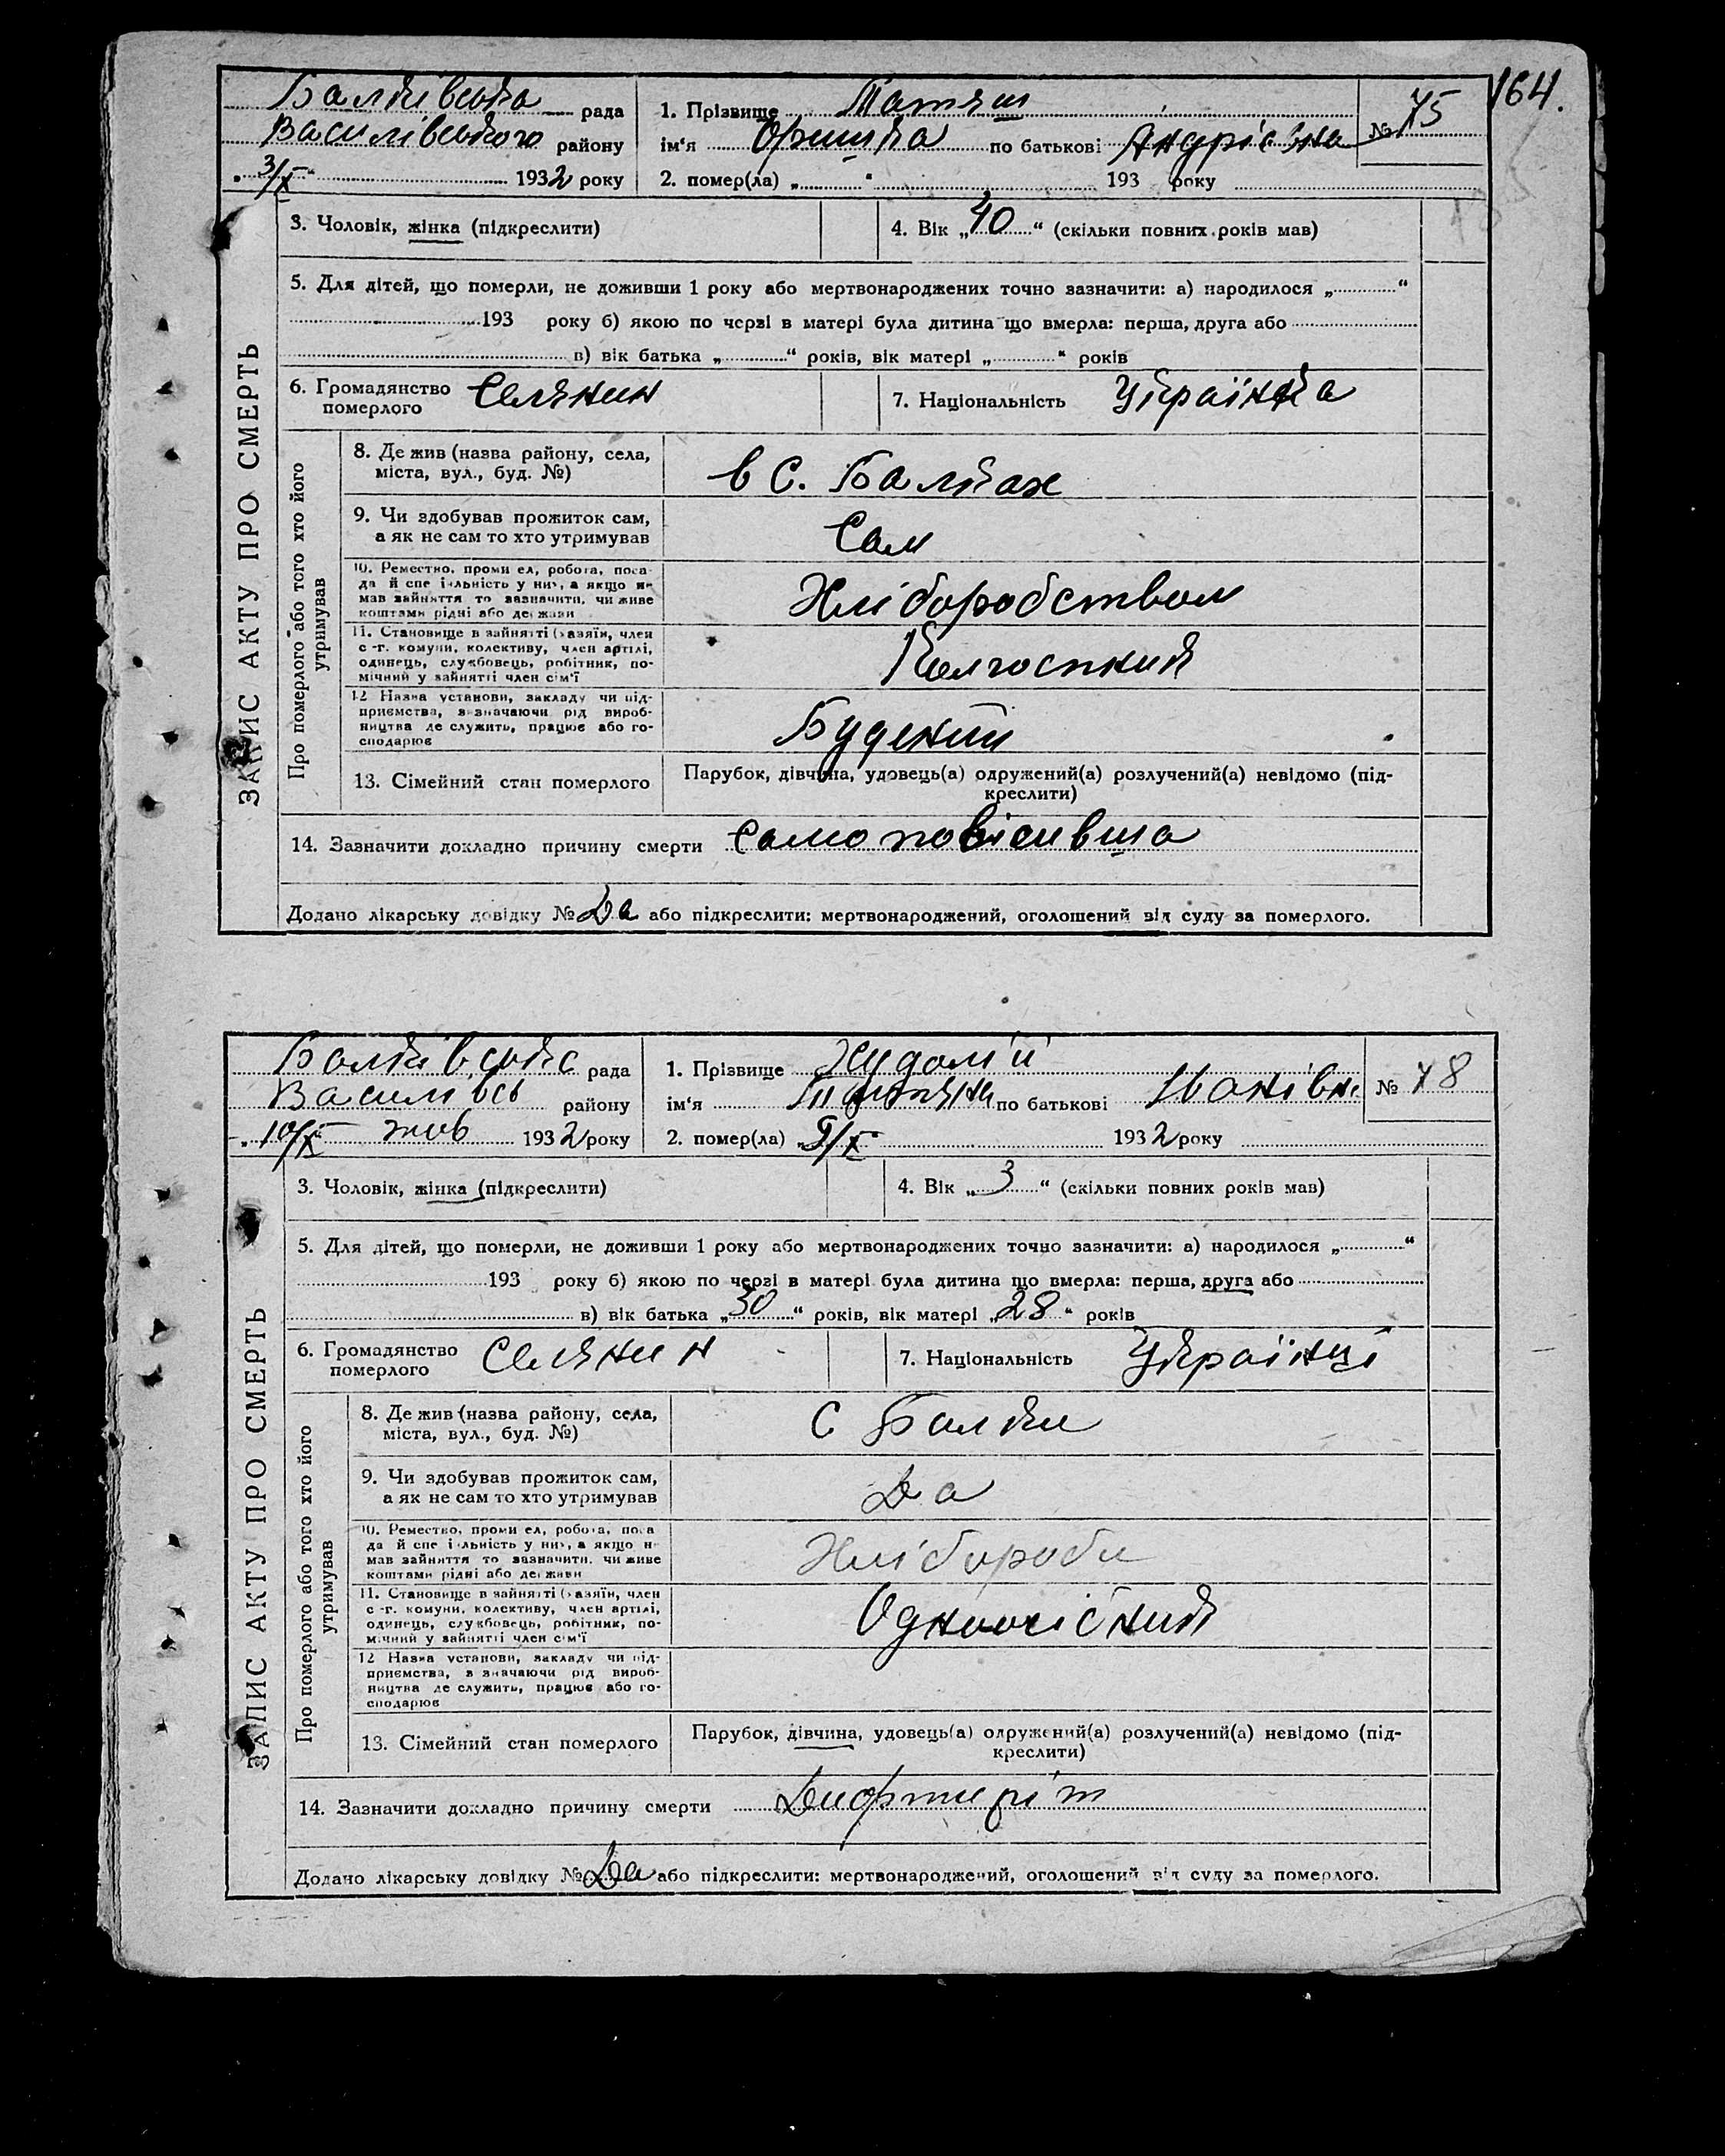 164.
Балківська рада
Василівського району
„3/X“ 1932 року
1. Прізвище Татяш
ім‘я Оришка по батькові Андріївна
№ 75
2. помер(ла) „ “ 193 року
ЗАПИС АКТУ ПРО СМЕРТЬ
3. Чоловік, жінка (підкреслити)
4. Вік „40“ (скільки повних років мав)
5. Для дітей, що померли, не доживши 1 року або мертвонароджених точно зазначити: а) народилося „ “
193 року б) якою по черзі в матері була дитина що вмерла: перша, друга або
в) вік батька „ “ років, вік матері „ “ років
6. Громадянство померлого Селянин
7. Національність Українка
Про померлого або того хто його утримував
8. Де жив (назва району, села,
міста, вул., буд. №)
в с. Балках
9. Чи здобував прожиток сам,
а як не сам то хто утримував
Сам
10. Реместно, проми ел, робота, поса-
да й спе і‑льність у них, а якщо не
мав зайняття то зазначити, чи живе
коштами рідні або держави
Хліборобством
11. Становище в зайнятті (хазяїн, член
с.-г. комуни, колективу, член артілі,
одинець, службовець, робітник, по-
мічний у зайнятті член сім‘ї
Колгоспник
12 Назва установи, закладу чи під-
приємства, зазначаючи рід вироб-
ництва де служить, працює або го-
сподарює
Будений
13. Сімейний стан померлого
Парубок, дівчина, удовець(а) одружений(а) розлучений(а) невідомо (під-
креслити)
14. Зазначити докладно причину смерти Само повісивша
Додано лікарську довідку № Да або підкреслити: мертвонароджений, оголошений від суду за померлого.
Балківська рада
Василівсь району
„10/X“ жов 1932 року
1. Прізвище Худолій
ім‘я Титяна по батькові Іванівн.
№ 78
2. помер(ла) „9/X 1932 року
ЗАПИС АКТУ ПРО СМЕРТЬ
3. Чоловік, жінка (підкреслити)
4. Вік „3“ (скільки повних років мав)
5. Для дітей, що померли, не доживши 1 року або мертвонароджених точно зазначити: а) народилося „ “
193 року б) якою по черзі в матері була дитина що вмерла: перша, друга або
в) вік батька „30“ років, вік матері „28“ років
6. Громадянство померлого Селянин
7. Національність Українці
Про померлого або того хто його утримував
8. Де жив (назва району, села,
міста, вул., буд. №)
С Балки
9. Чи здобував прожиток сам,
а як не сам то хто утримував
Да
10. Реместно, проми ел, робота, поса
да й спе і‑льність у них, а якщо не
мав зайняття то зазначити, чи живе
коштами рідні або держави
Хлібороби
11. Становище в зайнятті (хазяїн, член
с.-г. комуни, колективу, член артілі,
одинець, службовець, робітник, по-
мічний у зайнятті член сім‘ї
Одноосібник
12 Назва установи, закладу чи під-
приємства, зазначаючи рід вироб-
ництва де служить, працює або го-
сподарює
13. Сімейний стан померлого
Парубок, дівчина, удовець(а) одружений(а) розлучений(а) невідомо (під-
креслити)
14. Зазначити докладно причину смерти Дифтиріт
Додано лікарську довідку № Да або підкреслити: мертвонароджений, оголошений від суду за померлого.